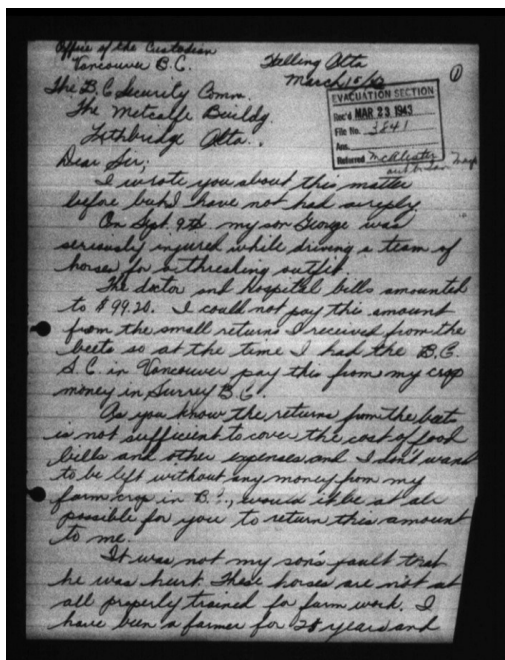 Office of the Custodian
Vancouver B.C.
Alta
March 15/43
①
The B.C Security Comm.
The Metcalfe Buildg.
Lethbridge Alta.
EVACUATION SECTION
Rec'd MAR 23 1943
File No. 3841
Ans.
Referred McAlister
Dear Sir;
I wrote you about this matter
before but I have not had a reply.
On Sept. 9th my son George was
seriously injured while driving a team of
horses for a threshing outfit.
The doctor and hospital bills amounted
to $99.20. I could not pay this amount
from the small returns I received from the
beets so at the time I had the B.C.
S.C. in Vancouver pay this from my crop
money in Surrey B.C.
As you know the returns from the beets
is not sufficient to cover the cost of food
bills and other expenses and I don't want
to be left without any money from my
farm crop in B.C., would it be at all
possible for you to return this amount
to me.
It was not my son's fault that
he was hurt. These horses are not at
all properly trained for farm work. I
have been a farmer for 28 years and